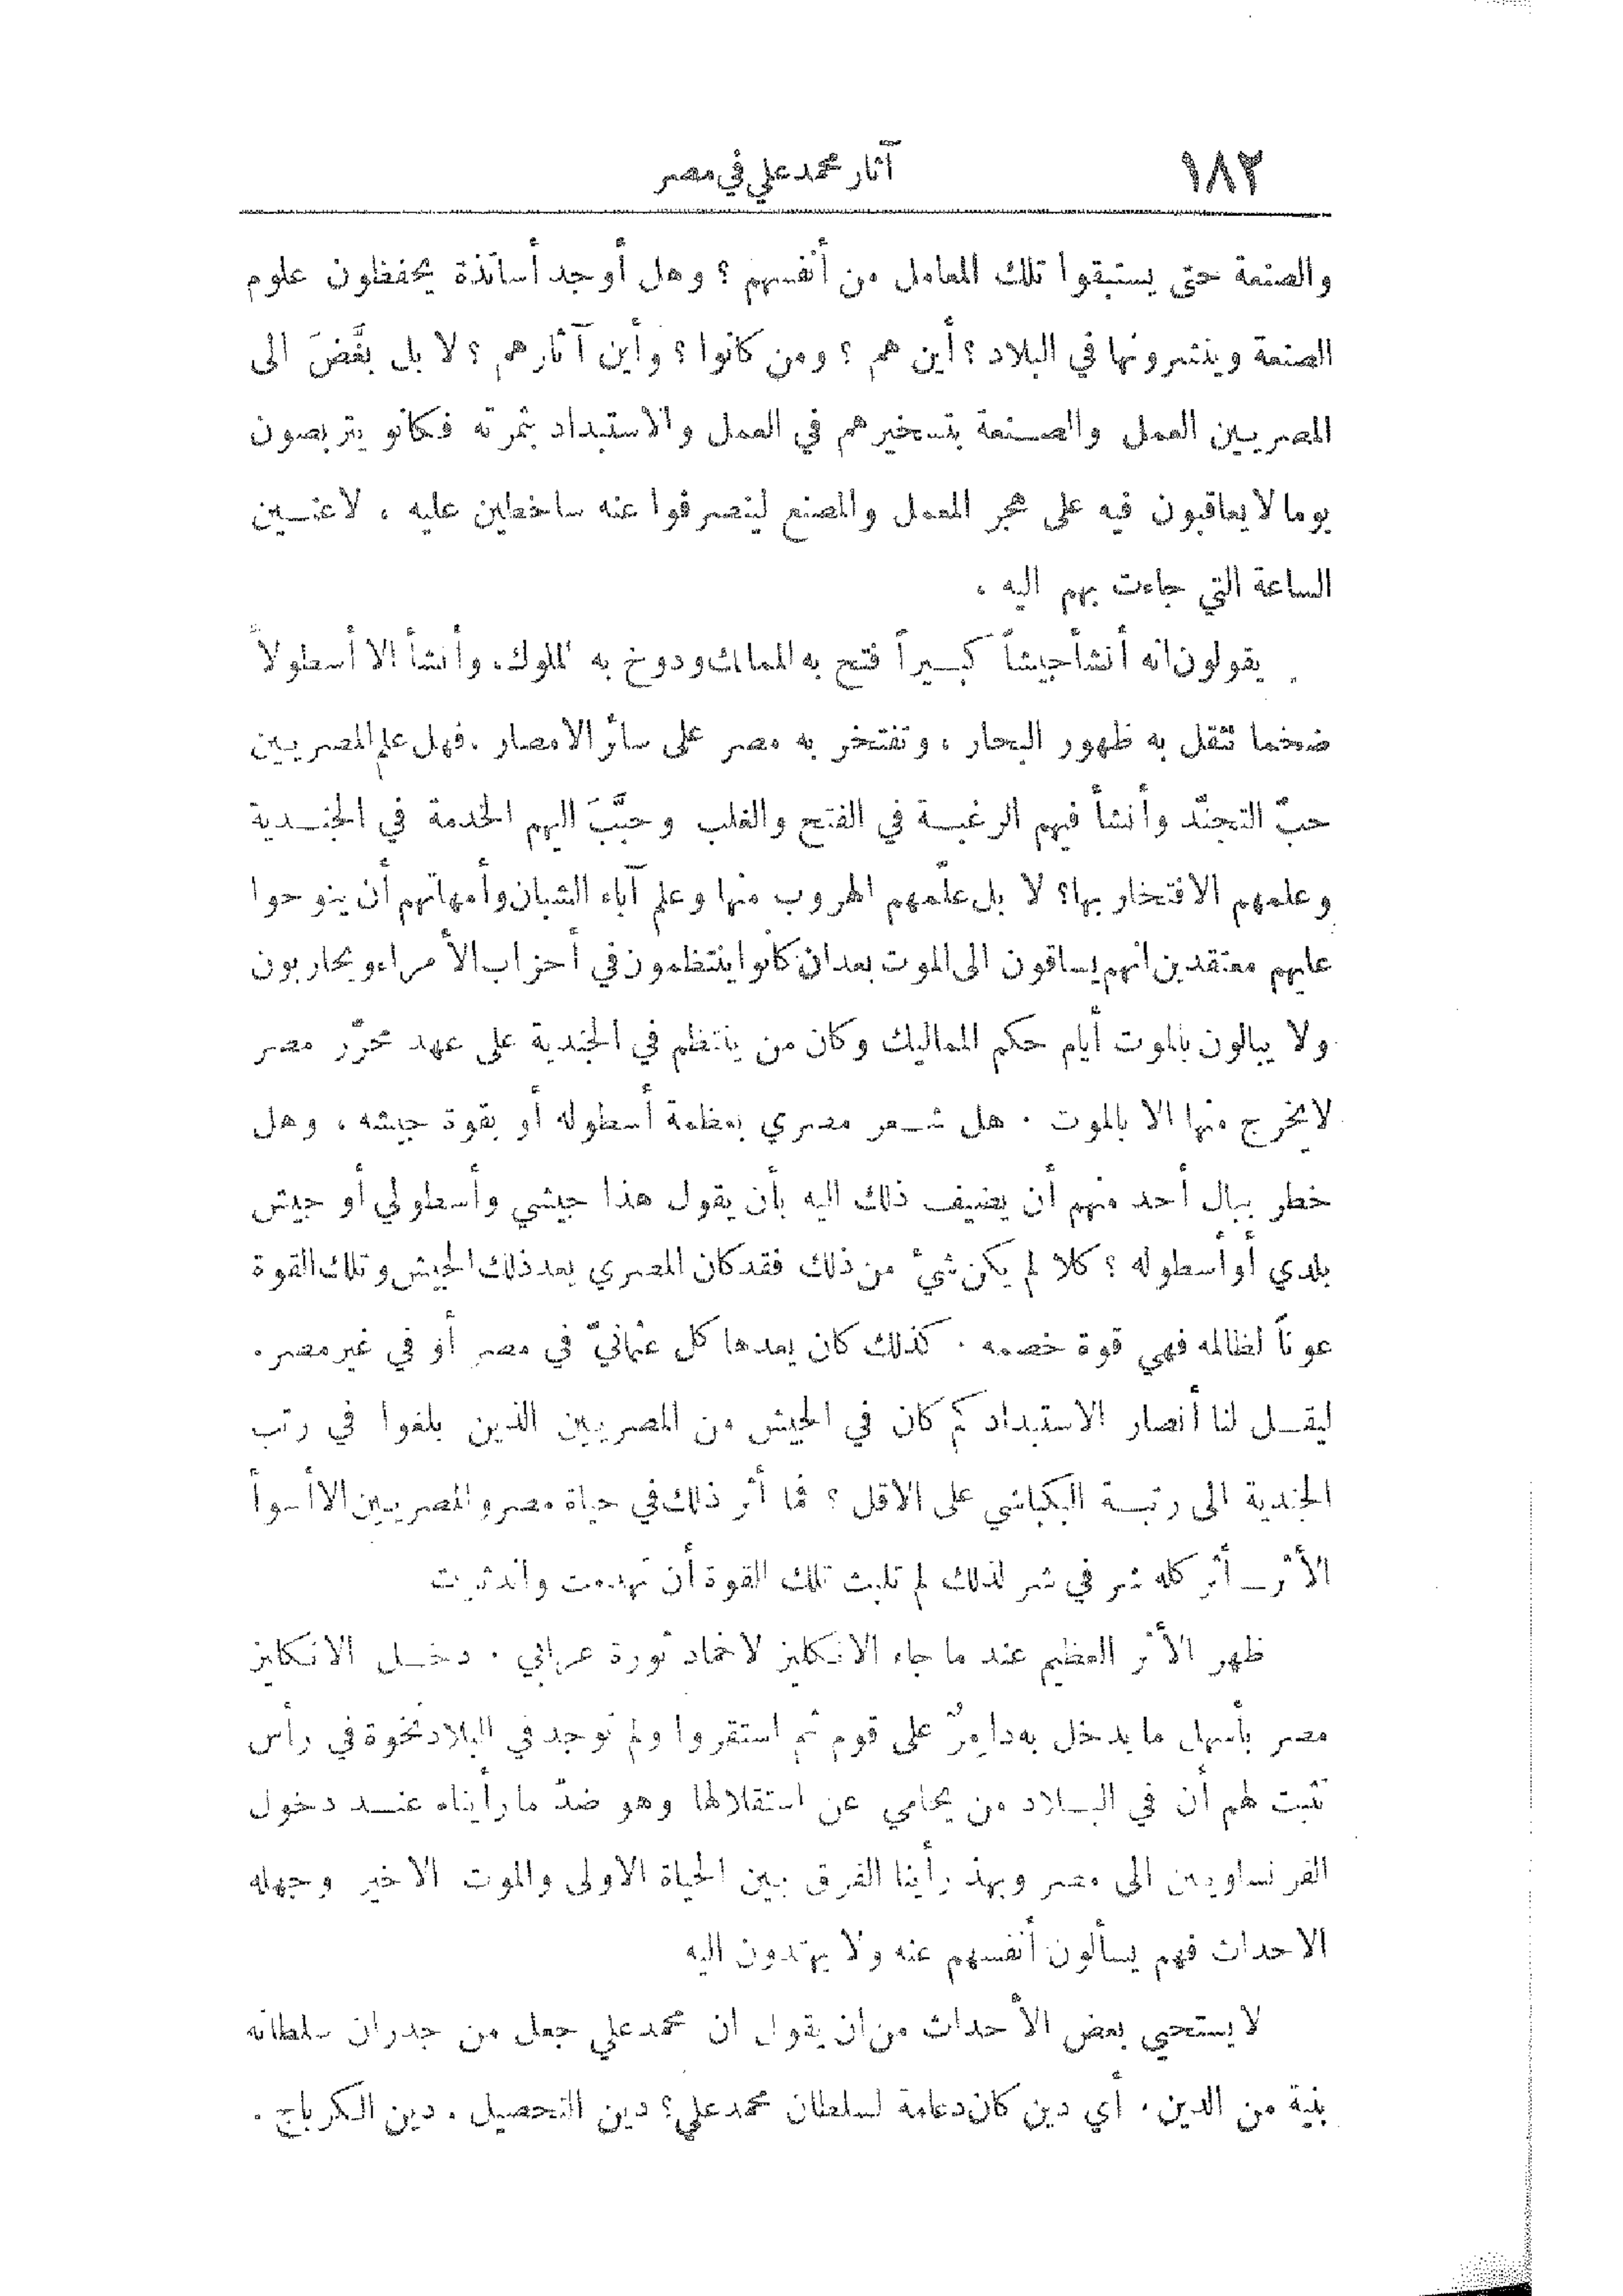 ١٨٢ آثار محمد علي في مصر
والصنعة حتى يستبقوا تلك المعامل من أنفسهم ؟ وهل أوجد أساتذة يحفظون علوم
الصنعة وينشرونها في البلاد ؟ أين هم ؟ ومن كانوا ؟ وأين آثارهم ؟ لا بل بغَّضَ الى
المصريين العمل والصنعة بتسخيرهم في العمل والاستبداد بثمرته فكانو يتربصون
يوما لا يعاقبون فيه على هجر المعمل والمصنع لينصرفوا عنه ساخطين عليه ، لاعنين
الساعة التي جاءت بهم اليه .
يقولون انه أنشأ جيشاً كبيراً فتح به الممالك ودوخ به الملوك. وأنشأ الا أسطولاً
ضخما تثقل به ظهور البحار ، وتفتخر به مصر على سائر الامصار . فهل علم المصريين
حبّ التجنّد وأنشأ فيهم الرغبة في الفتح والغلب وحبَّبَ اليهم الخدمة في الجندية
وعلمهم الافتخار بها؟ لا بل علّمهم الهروب منها وعلم آباء الشبان وأمهاتهم أن ينوحوا
عليهم معتقدين انهم يساقون الى الموت بعد ان كانوا ينتظمون في أحزاب الأمراء ويحاربون
ولا يبالون بالموت أيام حكم المماليك وكان من ينتظم في الجندية على عهد محرّر مصر
لا يخرج منها الا بالموت . هل شعر مصري بعظمة أسطوله أو بقوة جيشه ، وهل
خطر ببال أحد منهم أن يضيف ذلك اليه بأن يقول هذا جيشي وأسطولي أو جيش
بلدي أو أسطوله ؟ كلا لم يكن شيءٌ من ذلك فقد كان المصري يعد ذلك الجيش وتلك القوة
عوناً لظالمه فهي قوة خصمه . كذلك كان يعدها كل عثمانيّ في مصر أو في غير مصر .
ليقل لنا أنصار الاستبداد كم كان في الجيش من المصريين الذين بلغوا في رتب
الجندية الى رتبة البكباشي على الاقل ؟ فما أثر ذلك في حياة مصر والمصريين الا أسوأ
الأثر ــ أثر كله شر في شر لذلك لم تلبث تلك القوة أن تهدمت واندثرت
ظهر الأثر العظيم عند ما جاء الانكليز لاخماد ثورة عرابي . دخل الانكليز
مصر بأسهل ما يدخل به دامِرٌ على قوم ثم استقروا ولم توجد في البلاد نخوة في رأس
تثبت لهم أن في البلاد من يحامي عن استقلالها وهو ضدّ ما رأيناه عند دخول
الفرنساويين الى مصر وبهذ رأينا الفرق بين الحياة الاولى والموت الاخير وجهله
الاحداث فهم يسألون أنفسهم عنه ولا يهتدون اليه
لا يستحي بعض الأحداث من ان يقول ان محمد علي جعل من جدران سلطانه
بنية من الدين . أي دين كان دعامة لسلطان محمد علي ؟ دين التحصيل . دين الكرباج .